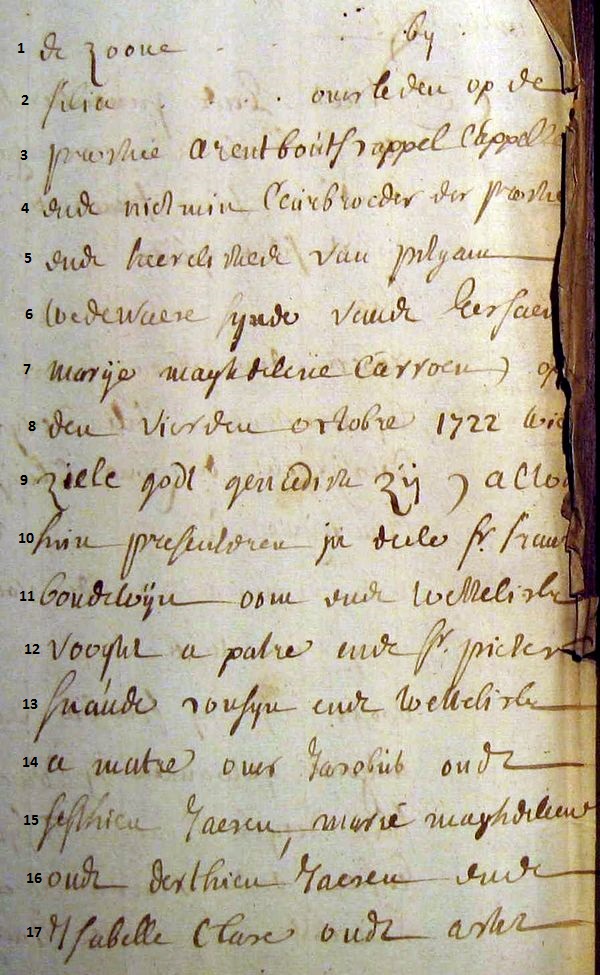 1 de zoone by
2 filia overleden op de
3 prochie arentbouts cappel Cappelle
4 ende nichmin Leinbroeder der prochie
5 ende heerelichede van pitgam
6 Weduwaere synde vande
7 marije maghdelene Carroen, op
8 den vierden octobre 1722 wie
9 ziele godt genadich zij, alwo
10 hun presenteren in dele Sr. fran
11 boudewijn oom ende Wettelicke
12 vooght a patre ende Sr. pieter
13 cousyn ende Wettelicke
14 a matre over Jacobus oudt
15 sesthien Jaeren, marie maghdelene
16 oudt derthien Jaeren ende
17 Isabelle Clare oudt acht